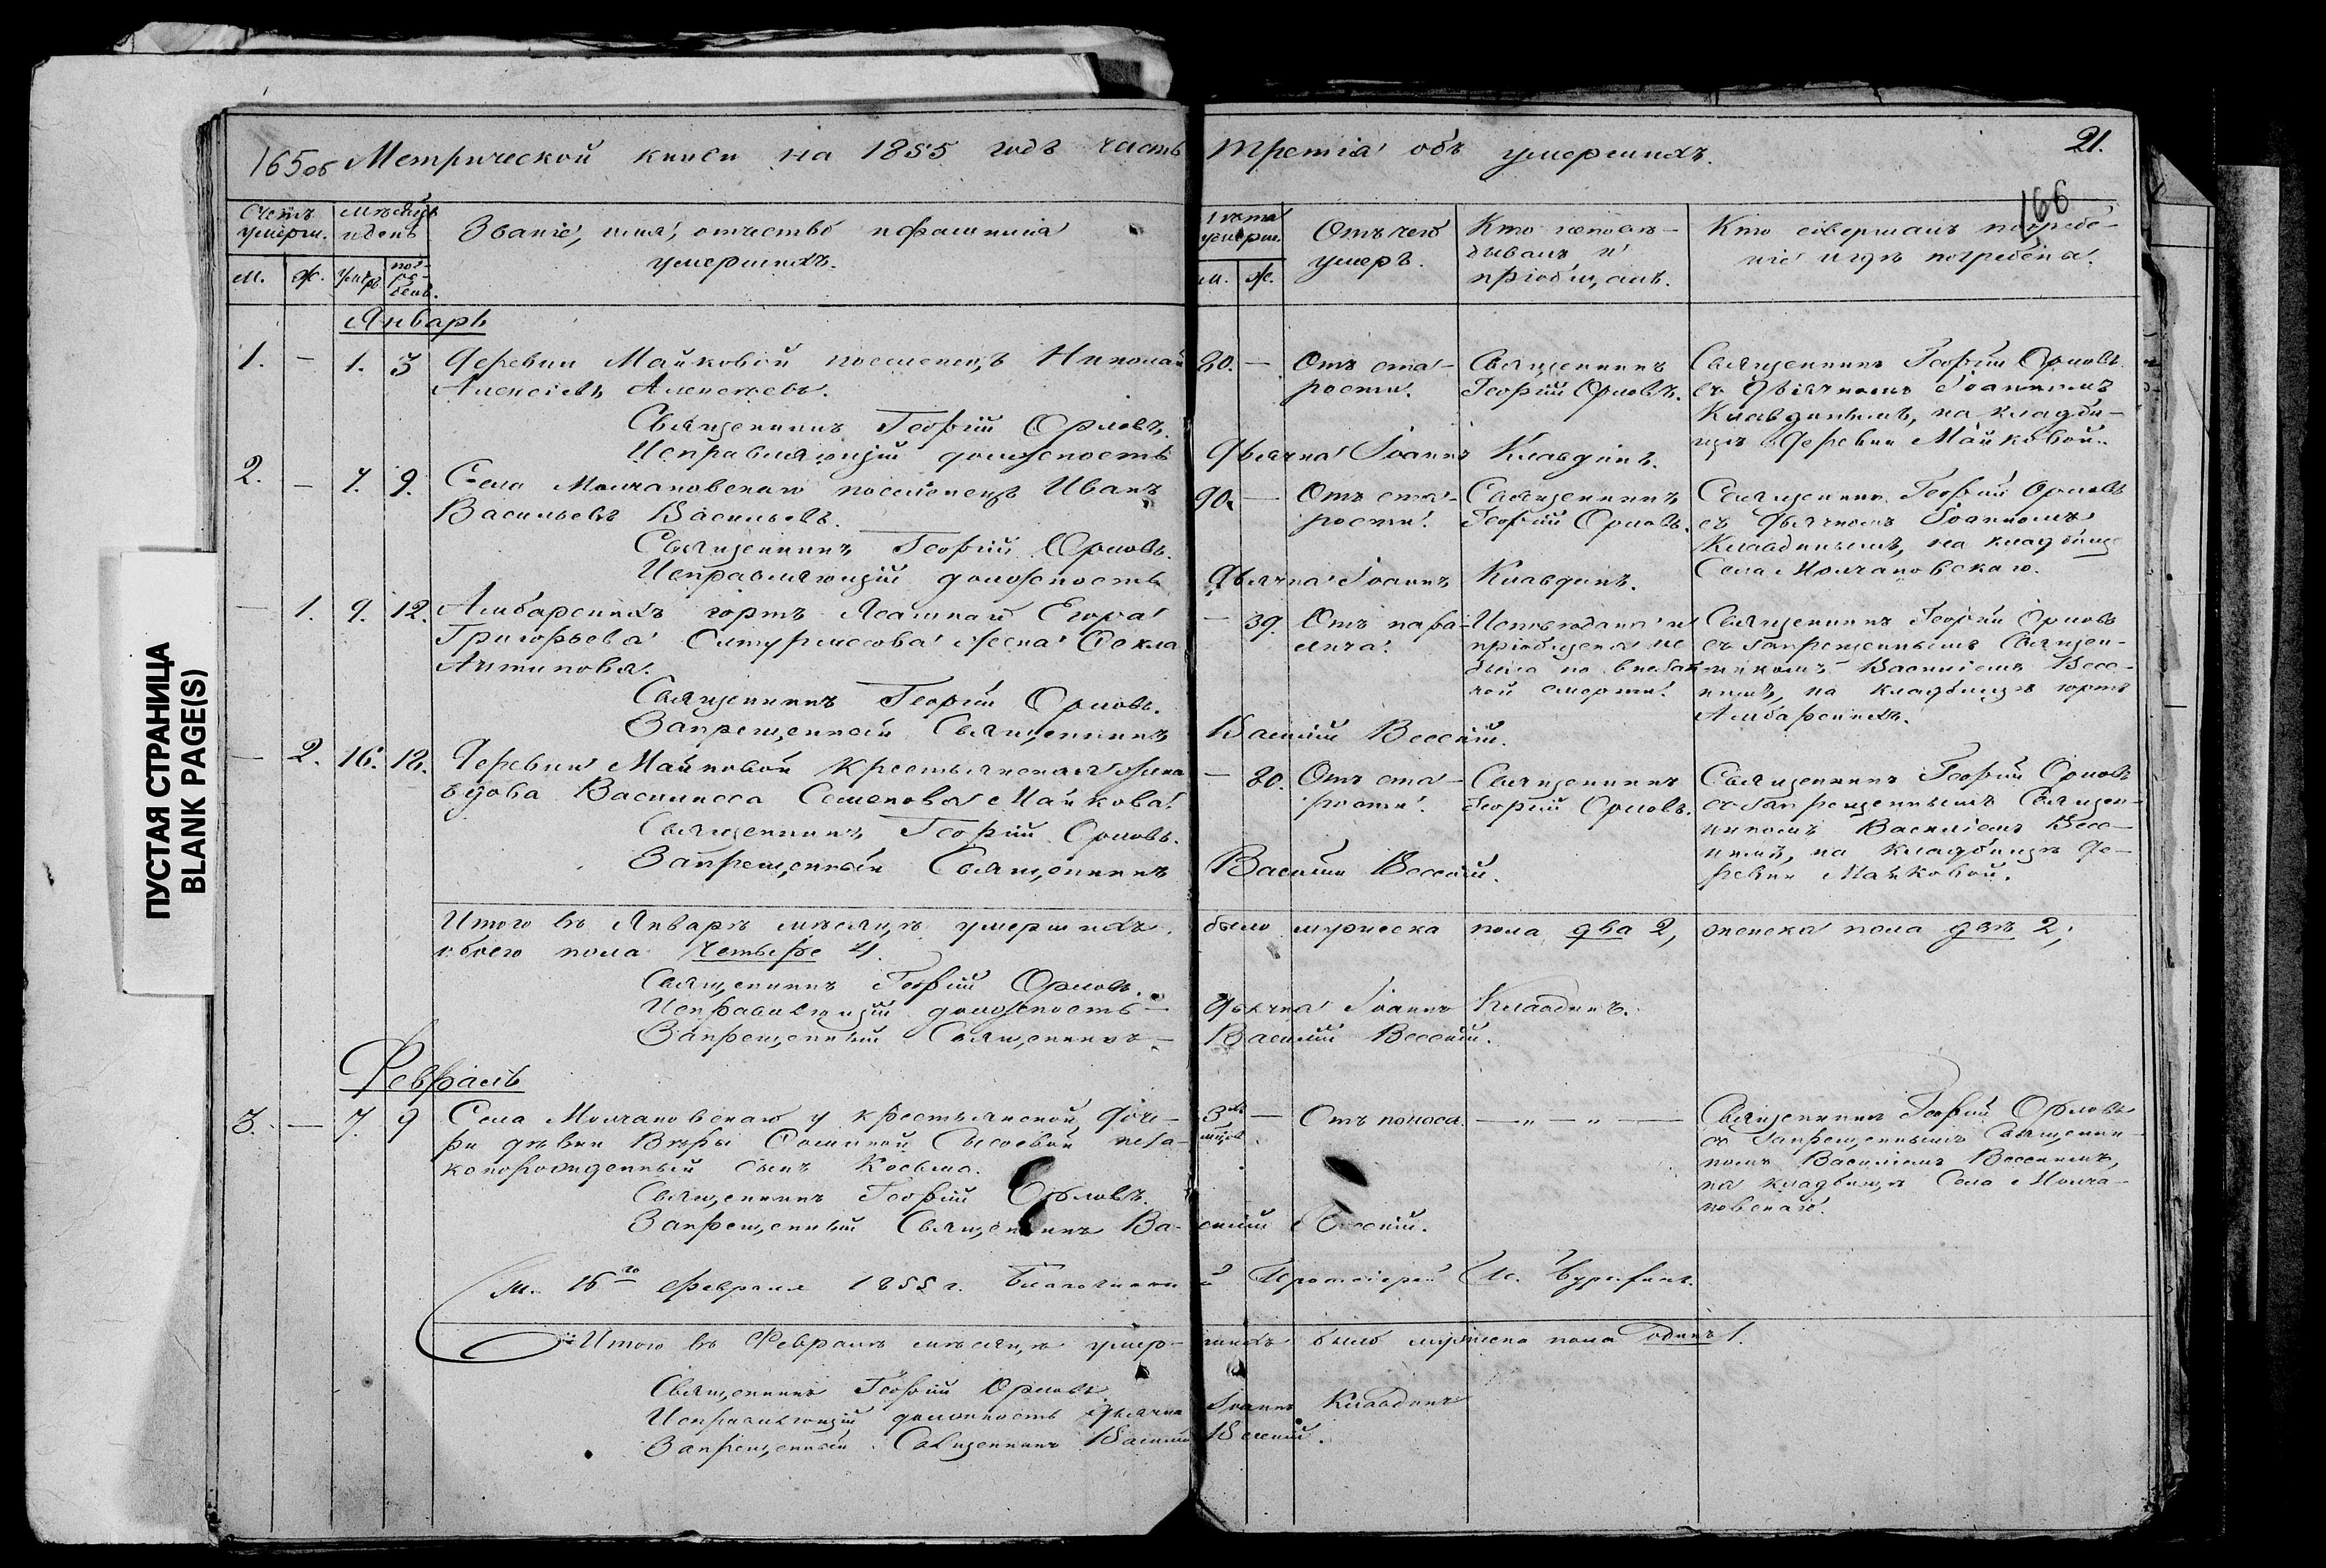 165об Метрической книги на 1855 годъ часть третія объ умершихъ.
21.
166
Счетъ умерш.
Мѣсяцъ и день
Званіе, имя, отчество и фамилія умершихъ.
Лѣта умерш.
Отъ чего умеръ.
Кто исповѣдывалъ и пріобщалъ.
Кто совершалъ погребеніе и гдѣ погребены.
м. ж. умерт. погребен. м. ж.
Январь
1. — 1. 3 Деревни Майковой поселенецъ Николай
Алексѣевъ Алексѣевъ.
Священникъ Георгій Орловъ.
Исправляющій должность Дьячка Іоаннъ Клавдинъ.
80. — Отъ старости.
Священникъ Георгій Орловъ.
Священникъ Георгій Орловъ
съ Дьячкомъ Іоанномъ
Клавдинымъ, на кладби-
щѣ Деревни Майковой.
2. — 7. 9. Села Молчановскаго поселенецъ Иванъ
Васильевъ Васильевъ.
Священникъ Георгій Орловъ.
Исправляющій должность Дьячка Іоаннъ Клавдинъ.
90. — Отъ старости.
Священникъ Георгій Орловъ.
Священникъ Георгій Орловъ
съ Дьячкомъ Іоанномъ
Клавдинымъ, на кладбищѣ
Села Молчановскаго.
— 1. 9. 12. Амбарскихъ юртъ Ясашнаго Егора
Григорьева жена Фекла
Антипова.
Священникъ Георгій Орловъ.
Запрещенный Священникъ Василій Веселій.
— 39. Отъ паралича.
Исповѣдана и
пріобщена не
была по внезап-
ной смерти.
Священникъ Георгій Орловъ
съ запрещеннымъ Священ-
никомъ Василіемъ Весе-
лимъ, на кладбищѣ юртъ
Амбарскихъ.
— 2. 16. 18. Деревни Майковой крестьянская жена
вдова Василисса Семенова Майкова.
Священникъ Георгій Орловъ.
Запрещенный Священникъ Василій Веселій.
— 80. Отъ старости.
Священникъ Георгій Орловъ.
Священникъ Георгій Орловъ
съ запрещеннымъ Священ-
никомъ Василіемъ Весе-
лимъ, на кладбищѣ Де-
ревни Майковой.
Итого въ Январѣ мѣсяцѣ умершихъ было мужеска пола два 2, женска пола двѣ 2,
обоего пола четыре 4.
Священникъ Георгій Орловъ.
Исправляющій должность — Дьячка Іоаннъ Клавдинъ.
Запрещенный Священникъ — Василій Веселій.
Февраль
3. — 7. 9 Села Молчановскаго у крестьянской доче-
ри дѣвки Вѣры Фоминой Сысоевой неза-
коннорожденный сынъ Косьма.
Священникъ Георгій Орловъ.
Запрещенный Священникъ Василій Веселій.
3хъ мѣсяц. — Отъ поноса. — „ — „ —
Священникъ Георгій Орловъ
съ запрещеннымъ Священни-
комъ Василіемъ Веселимъ,
на кладбищѣ Села Молча-
новскаго.
16го Февраля 1855 г. Благочинный Протоіерей
Итого въ Февралѣ мѣсяцѣ умер-шихъ было мужеска пола одинъ 1.
Священникъ Георгій Орловъ
Исправляющій должность Дьячка Іоаннъ Клавдинъ
Запрещенный Священникъ Василій Веселій.
ПУСТАЯ СТРАНИЦА
BLANK PAGE(S)